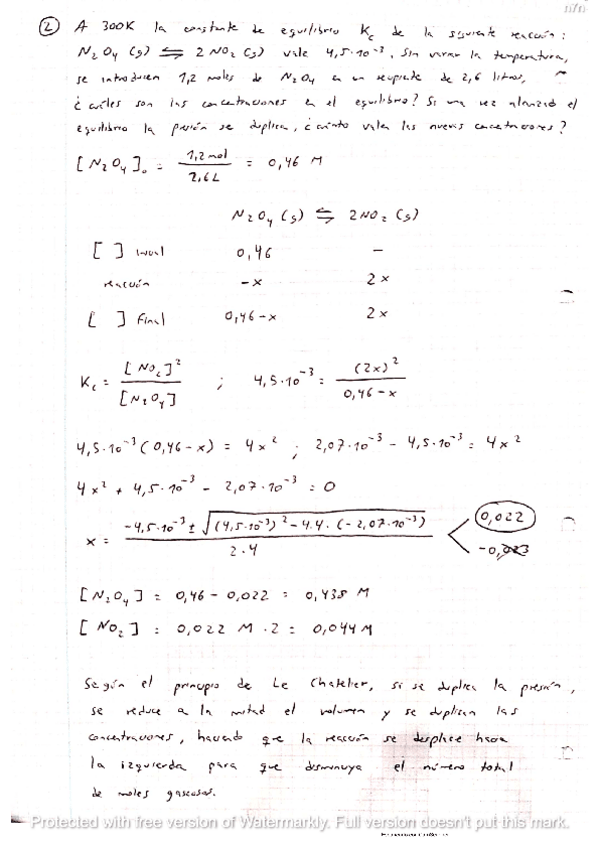 ② A 300K la constante de equilibrio Kc de la siguiente reacción:
N2O4 (g) ⇌ 2 NO2 (g) vale 4,5·10⁻³. Sin variar la temperatura,
se introducen 1,2 moles de N2O4 en un recipiente de 2,6 litros,
¿cuáles son las concentraciones en el equilibrio? Si una vez alcanzado el
equilibrio la presión se duplica, ¿cuánto valen las nuevas concentraciones?
[N2O4]₀ = 1,2 mol / 2,6 L = 0,46 M
N2O4 (g) ⇌ 2NO2 (g)
[ ] inicial 0,46 –
reacción -x 2x
[ ] final 0,46-x 2x
Kc = [NO2]² / [N2O4] ; 4,5·10⁻³ = (2x)² / 0,46-x
4,5·10⁻³ (0,46-x) = 4x² ; 2,07·10⁻³ - 4,5·10⁻³ = 4x²
4x² + 4,5·10⁻³ - 2,07·10⁻³ = 0
x = -4,5·10⁻³ ± √((4,5·10⁻³)² - 4·4·(-2,07·10⁻³)) / 2·4 < 0,022
-0,023
[N2O4] = 0,46 - 0,022 = 0,438 M
[NO2] = 0,022 M · 2 = 0,044 M
Según el principio de Le Chatelier, si se duplica la presión,
se reduce a la mitad el volumen y se duplican las
concentraciones, haciendo que la reacción se desplace hacia
la izquierda para que disminuya el número total
de moles gaseosos.
Protected with free version of Watermarkly. Full version doesn't put this mark.